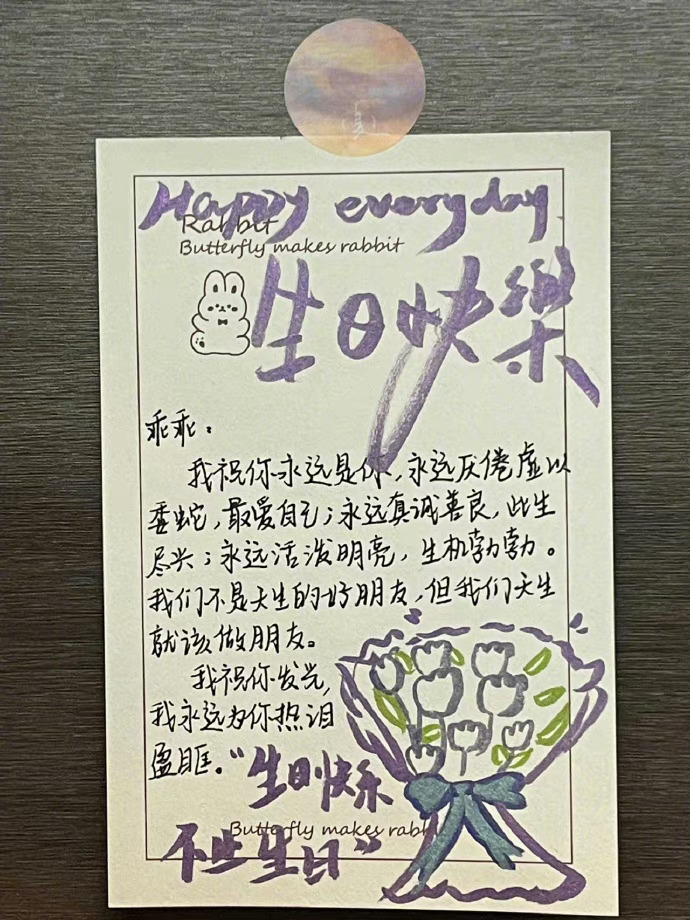 Happy everyday
Rabbit
Butterfly makes rabbit
生日快樂
乖乖：
我祝你永远是你，永远厌倦虚以
委蛇，最爱自己；永远真诚善良，此生
尽兴；永远活泼明亮，生机勃勃。
我们不是天生的好朋友，但我们天生
就该做朋友。
我祝你发光，
我永远为你热泪
盈眶。“生日快乐
Butterfly makes rabb
不止生日”